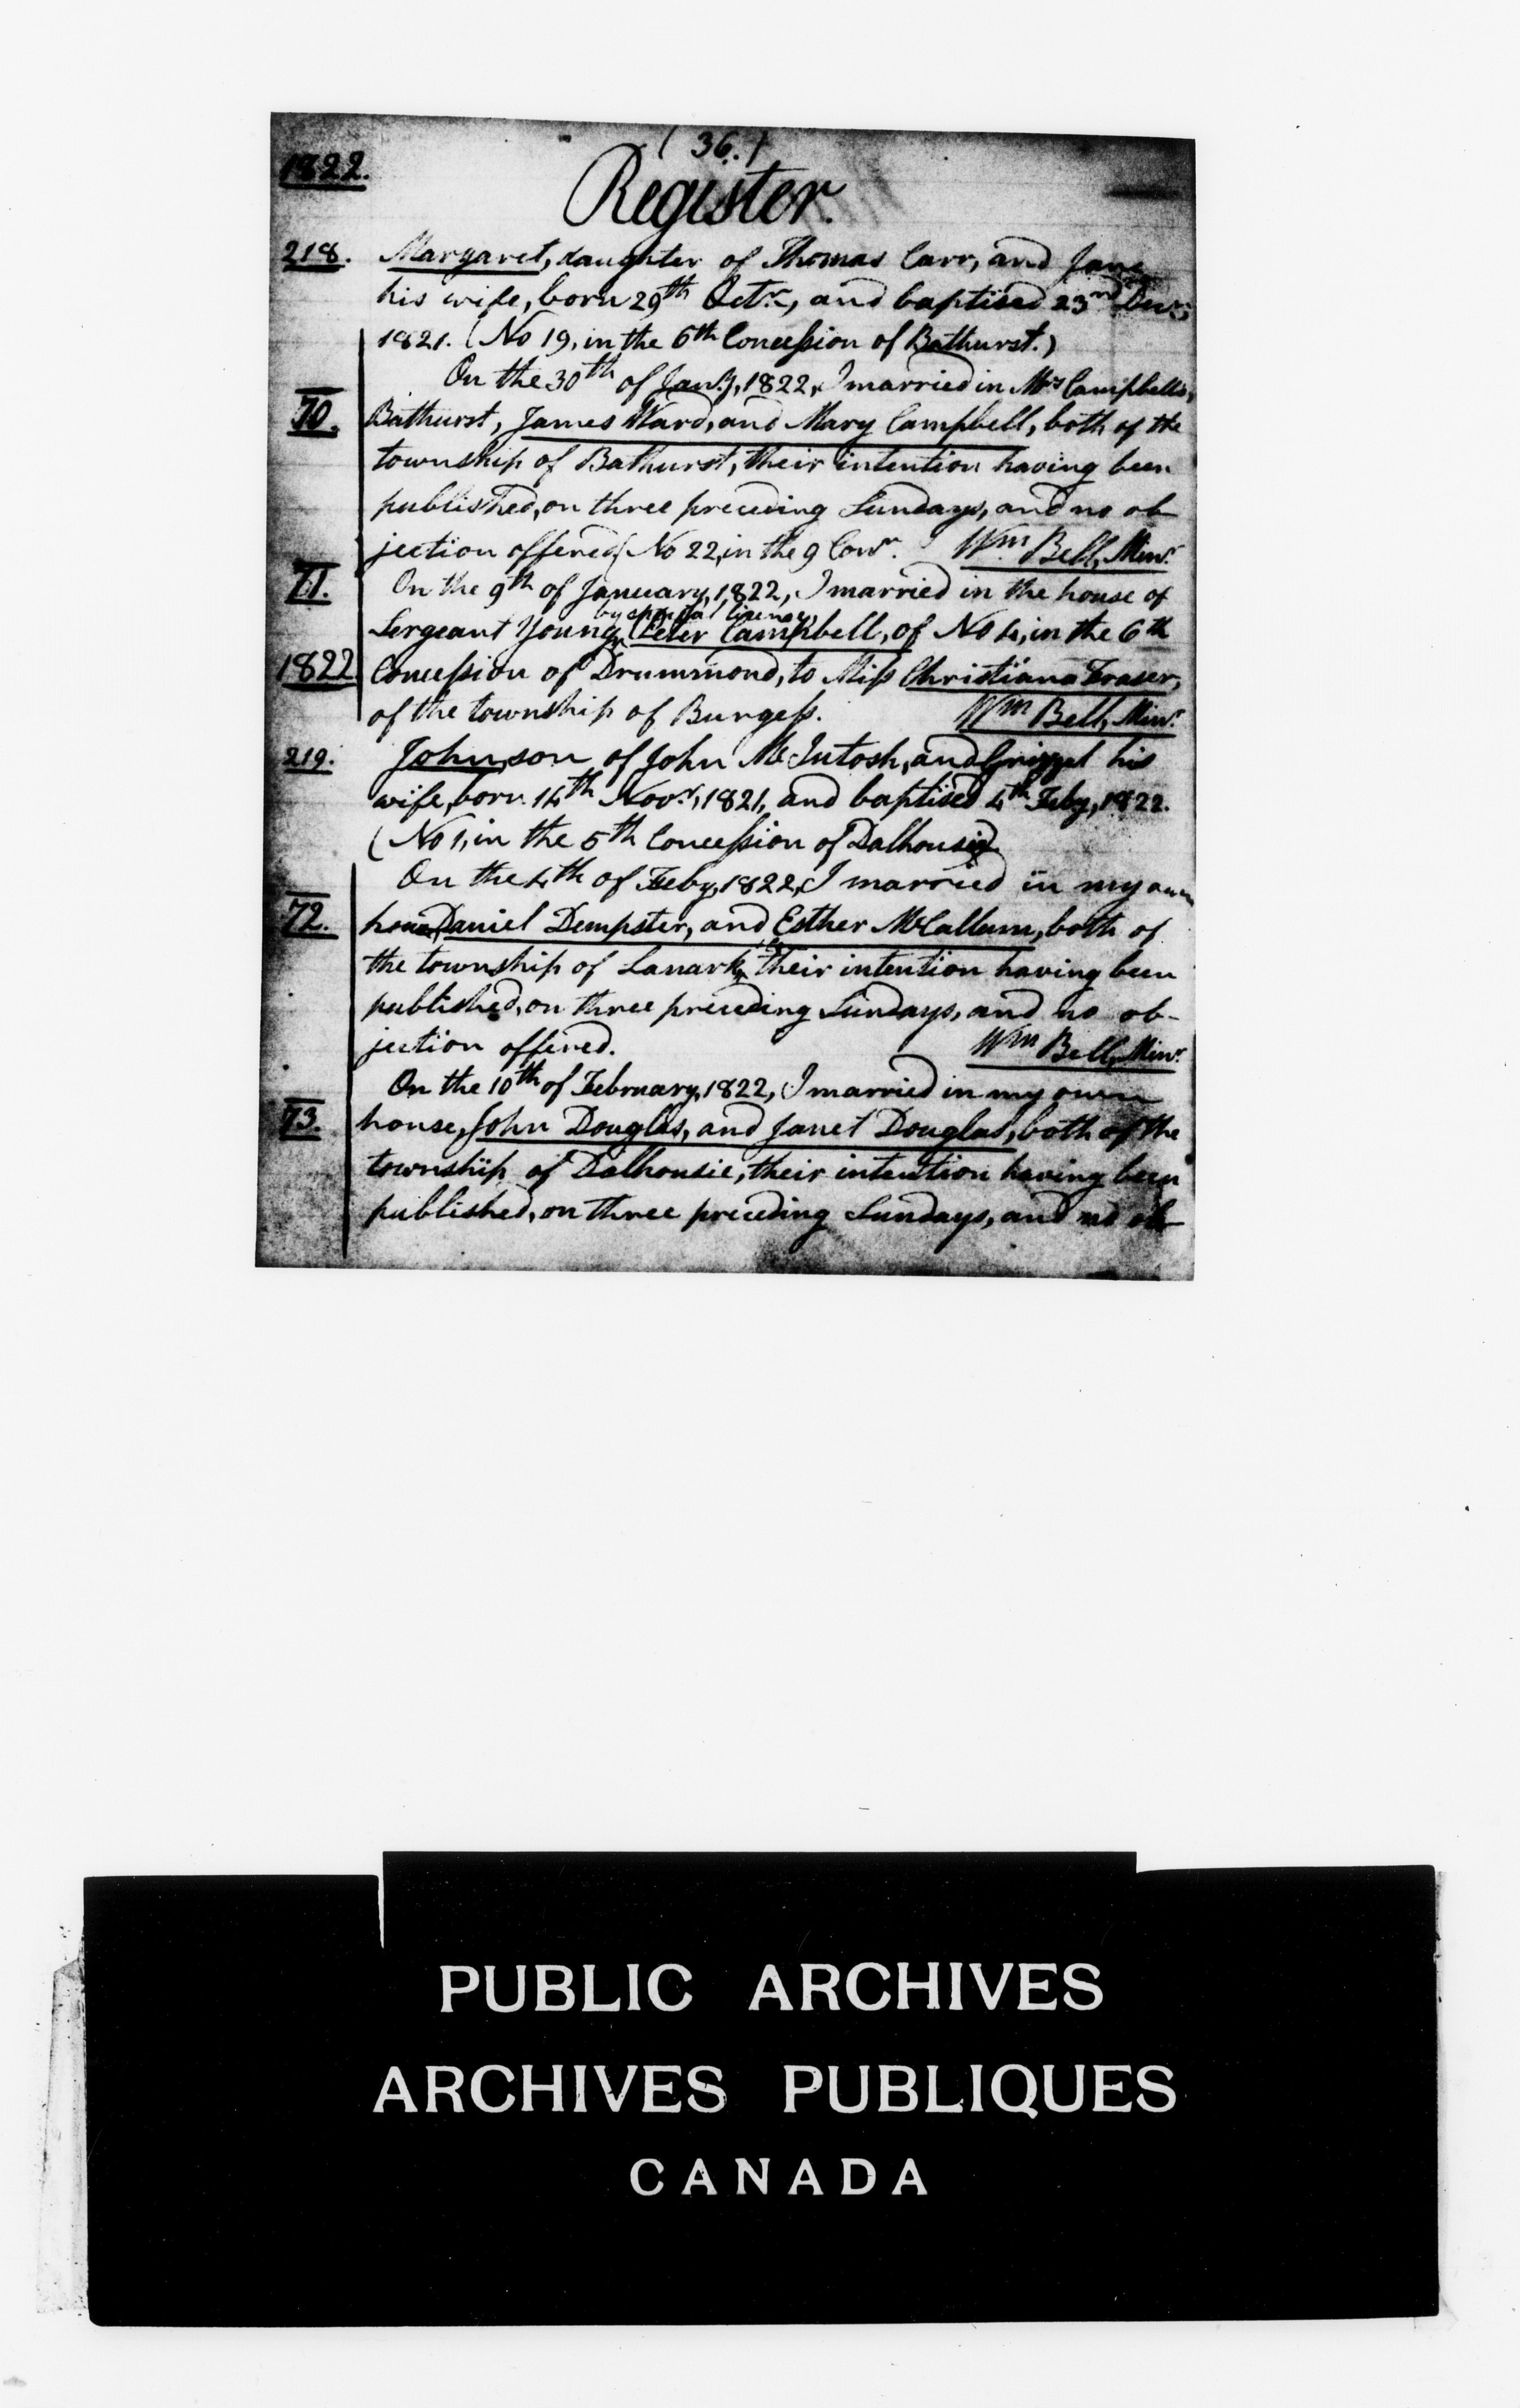 (36.)
1822.
Register.
218. Margaret, daughter of Thomas Carr, and Jane
his wife, born 29th Octr., and baptised 23rd Decr.,
1821. (No 19, in the 6th Concession of Bathurst.)
On the 30th of Jany, 1822, I married in Mrs Campbells,
70. Bathurst, James Ward, and Mary Campbell, both of the
township of Bathurst, their intention having been
published, on three preceding Sundays, and no ob
jection offered (No 22, in the 9 Conn. Wm Bell, Minr.
71. On the 9th of January, 1822, I married in the house of
by special licence,
Sergeant Young, Peter Campbell, of No 4, in the 6th
1822 Concession of Drummond, to Miss Christiana Fraser,
of the township of Burgess. Wm Bell, Minr.
219. John, son of John McIntosh, and Grizzel his
wife, born 14th Novr., 1821, and baptised 4th Feby, 1822.
(No 1, in the 5th Concession of Dalhousie)
On the 4th of Feby, 1822, I married in my own
72. house Daniel Dempster, and Esther McCallum, both of
the township of Lanark, their intention having been
published, on three preceding Sundays, and no ob-
jection offered. Wm Bell, Minr.
On the 10th of February, 1822, I married in my own
73. house, John Douglas, and Janet Douglas, both of the
township of Dalhousie, their intention having been
published, on three preceding Sundays, and no ob-
PUBLIC ARCHIVES
ARCHIVES PUBLIQUES
CANADA